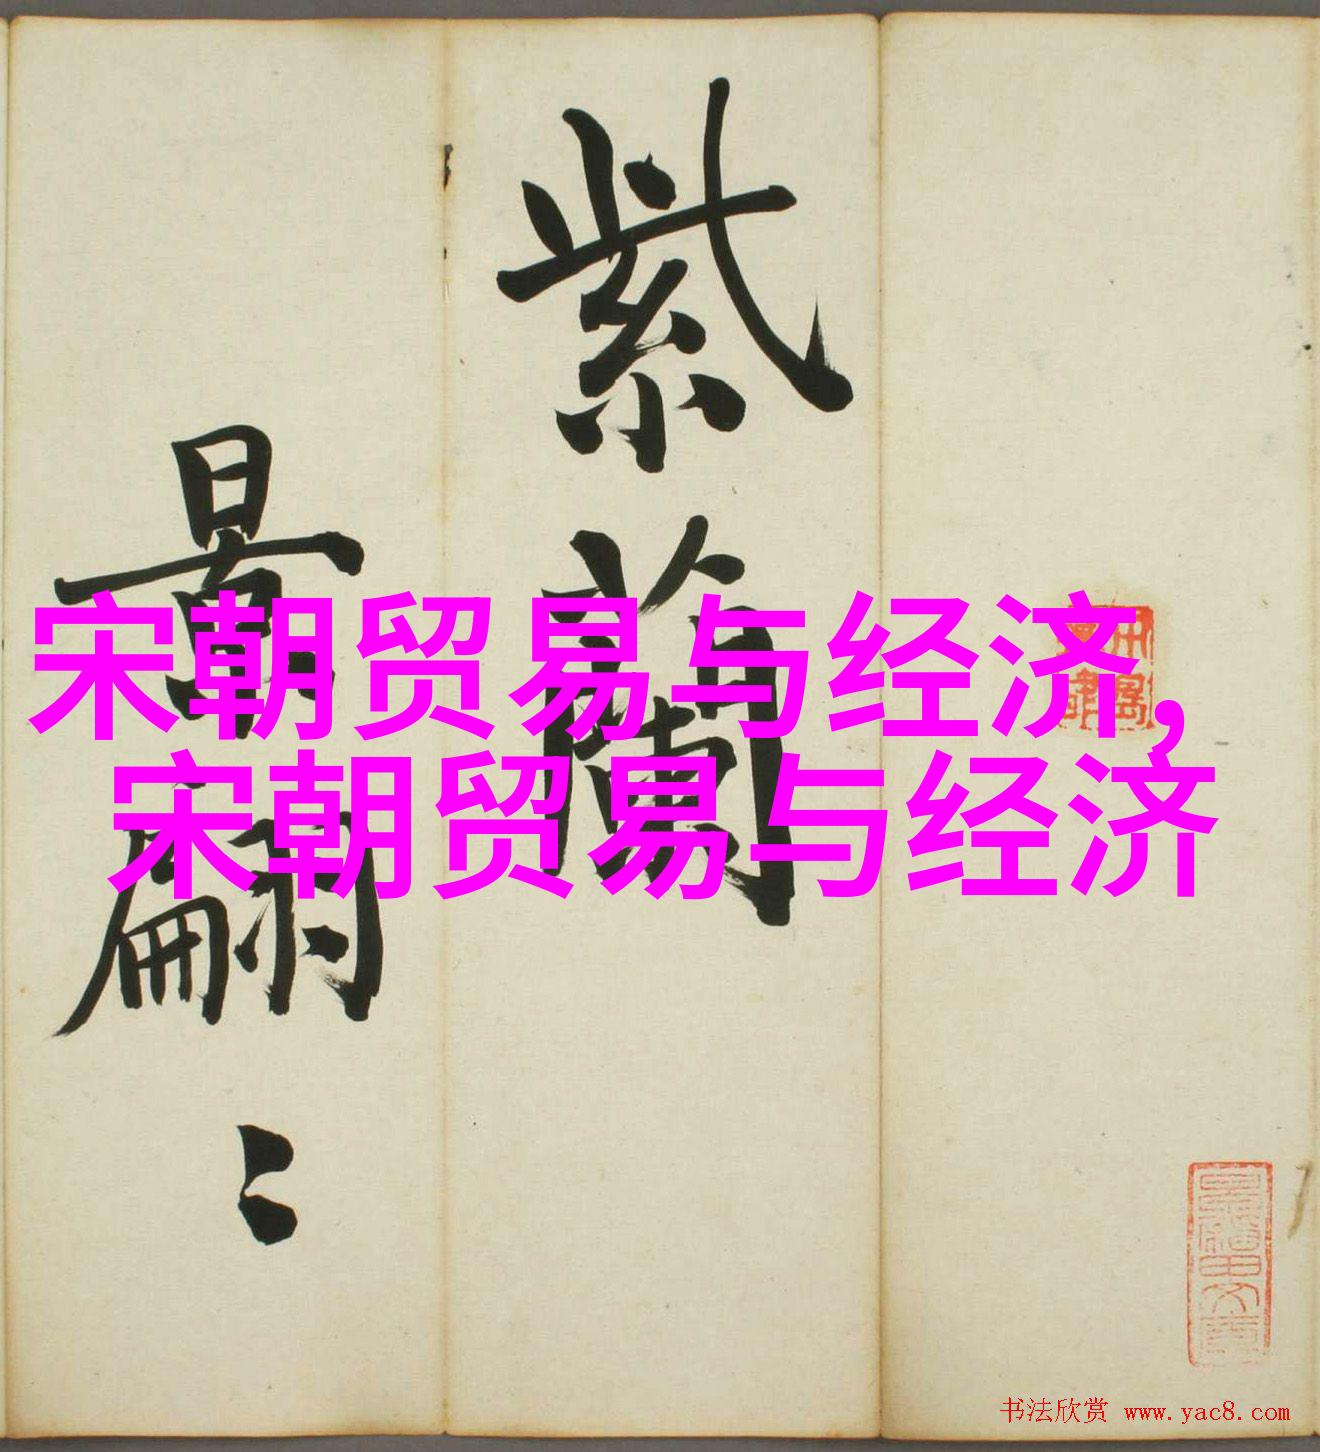 宋朝贸易与经济,
宋朝贸易与经济
紫蘭
景翩〻
书法欣赏 www.yac8.com